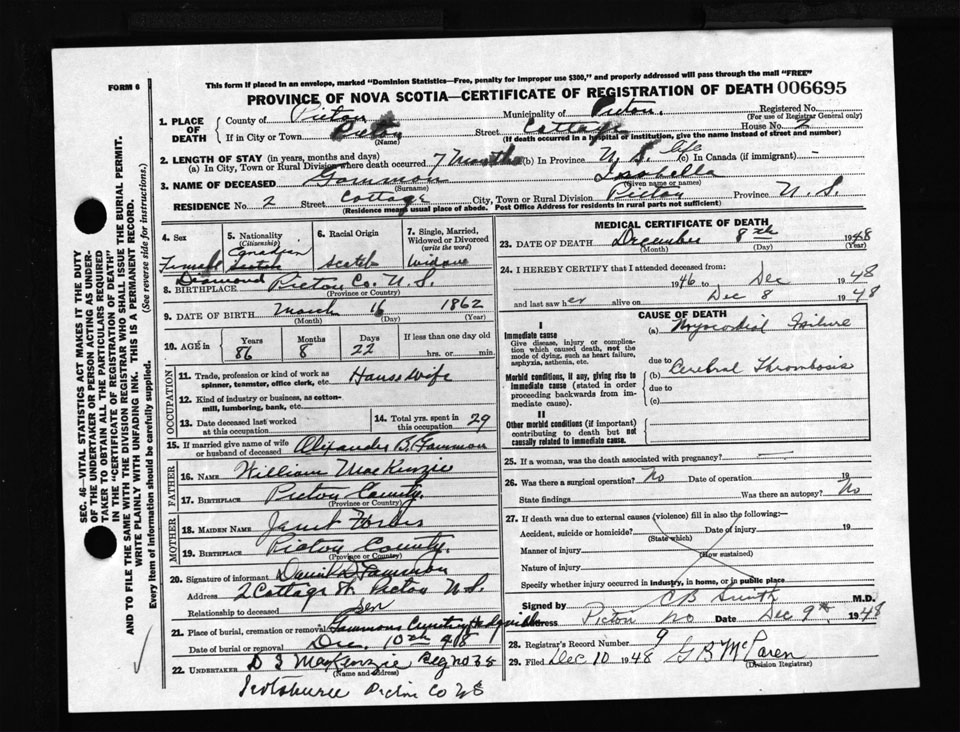 FORM 6
This form if placed in an envelope, marked "Dominion Statistics—Free, penalty for improper use $300," and properly addressed will pass through the mail "FREE"
PROVINCE OF NOVA SCOTIA—CERTIFICATE OF REGISTRATION OF DEATH 006695
SEC. 46—VITAL STATISTICS ACT MAKES IT THE DUTY
OF THE UNDERTAKER OR PERSON ACTING AS UNDER-
TAKER TO OBTAIN ALL THE PARTICULARS REQUIRED
IN THE "CERTIFICATE OF REGISTRATION OF DEATH"
AND TO FILE THE SAME WITH THE DIVISION REGISTRAR WHO SHALL ISSUE THE BURIAL PERMIT.
WRITE PLAINLY WITH UNFADING INK. THIS IS A PERMANENT RECORD.
Every item of information should be carefully supplied. (See reverse side for instructions.)
1. PLACE OF DEATH
County of Pictou Municipality of Pictou. Registered No.
(For use of Registrar General only)
If in City or Town Pictou Street Cottage House No. 2
(Name) (If death occurred in a hospital or institution, give the name instead of street and number)
2. LENGTH OF STAY (in years, months and days)
(a) In City, Town or Rural Division where death occurred 7 Months (b) In Province N. S. life (c) In Canada (if immigrant) -
3. NAME OF DECEASED Gammon Isabella
(Surname) (Given name or names)
RESIDENCE No. 2 Street Cottage City, Town or Rural Division Pictou Province N. S.
(Residence means usual place of abode. Post Office Address for residents in rural parts not sufficient)
4. Sex
Female
5. Nationality
(Citizenship)
Canadian
6. Racial Origin
Scotch
7. Single, Married, Widowed or Divorced
(write the word)
Widow
8. BIRTHPLACE Diamond Pictou Co. N. S.
(Province or Country)
9. DATE OF BIRTH March 16 1862
(Month) (Day) (Year)
10. AGE in Years Months Days If less than one day old
86 8 22 hrs. or min.
OCCUPATION
11. Trade, profession or kind of work as
spinner, teamster, office clerk, etc. House Wife
12. Kind of industry or business, as cotton-
mill, lumbering, bank, etc.
13. Date deceased last worked
at this occupation
14. Total yrs. spent in
this occupation 29
15. If married give name of wife
or husband of deceased Alexander B. Gammon
FATHER
16. NAME William MacKenzie
17. BIRTHPLACE Pictou County.
(Province or Country)
MOTHER
18. MAIDEN NAME Janet Forbes
19. BIRTHPLACE Pictou County.
(Province or Country)
20. Signature of informant Daniel D Gammon
Address 2 Cottage St Pictou N.S.
Relationship to deceased Son
21. Place of burial, cremation or removal Gammons Cemetery
Date of burial or removal Dec. 10th 48
22. UNDERTAKER D J MacKenzie Reg no 38
Scotsburn Pictou Co NS
MEDICAL CERTIFICATE OF DEATH
23. DATE OF DEATH December 8th 1948
(Month) (Day) (Year)
24. I HEREBY CERTIFY that I attended deceased from:
1946 to Dec 1948
and last saw her alive on Dec 8 1948
CAUSE OF DEATH
I
Immediate cause
Give disease, injury or complica-
tion which caused death, not the
mode of dying, such as heart failure,
asphyxia, asthenia, etc.
(a) Myocardial Failure
due to
Morbid conditions, if any, giving rise to
immediate cause (stated in order
proceeding backwards from im-
mediate cause).
(b) Cerebral Thrombosis
due to
(c)
II
Other morbid conditions (if important)
contributing to death but not
causally related to immediate cause.
25. If a woman, was the death associated with pregnancy? —
26. Was there a surgical operation? No Date of operation 19
State findings Was there an autopsy? No
27. If death was due to external causes (violence) fill in also the following:—
Accident, suicide or homicide? Date of injury 19
(State which)
Manner of injury
(How sustained)
Nature of injury
Specify whether injury occurred in industry, in home, or in public place
Signed by C B Smith M.D.
Address Pictou NS Date Dec 9th 1948
28. Registrar's Record Number 9
29. Filed Dec 10 1948 G B McLaren
(Division Registrar)